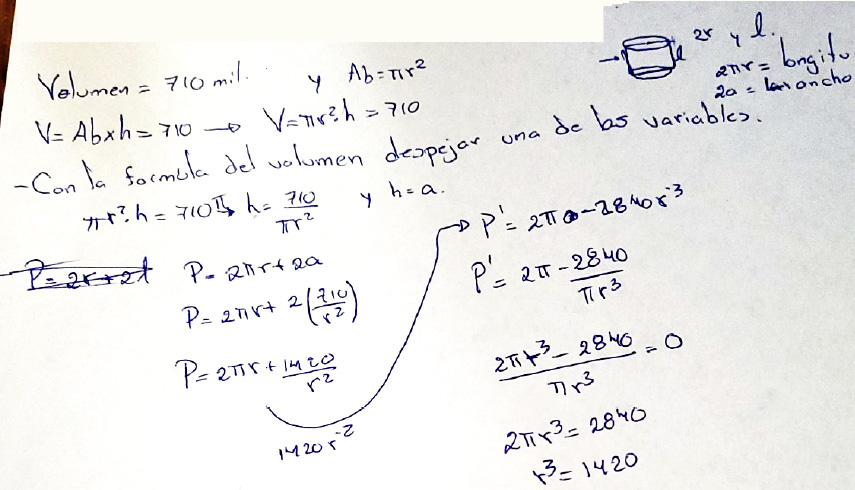 2r y l.
2πr = longitu
2a = ancho
Volumen = 710 mil. y Ab = πr²
V = Abxh = 710 → V = πr².h = 710
- Con la formula del volumen despejar una de las variables.
πr².h = 710 h = 710/πr² y h = a.
P = 2r + 2l
P = 2πr + 2a
P = 2πr + 2(710/r²)
P = 2πr + 1420/r²
1420r⁻²
→ P' = 2π - 2840r⁻³
P' = 2π - 2840/πr³
2πr³ - 2840/πr³ = 0
2πr³ = 2840
r³ = 1420